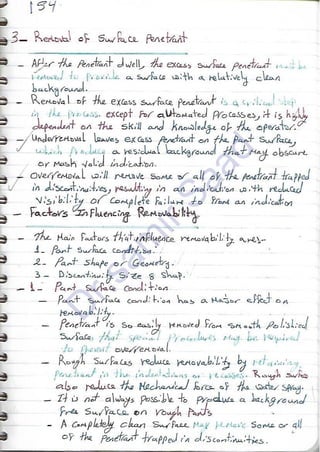 154
3- Removal of Surface Penetrant
- After the Penetrant dwell, the excess surface penetrant must be
removed to provide a surface with a relatively clean
background.
- Removal of the excess surface penetrant is a critical step
in the process except for automated processes, it is highly
dependent on the skill and knowledge of the operator.
- Underremoval leaves excess Penetrant on the Part surface,
which produces a residual background that may obscure
or mask valid indication.
- Overremoval will remove some or all of the penetrant trapped
in discontinuities, resulting in an indication with reduced
Visibility or complete failure to from an indication
- Factors Influencing Removability
- The Main Factors that influence removability are:-
1- Part surface condition.
2- Part shape or Geometry.
3- Discontinuity size & shap.
- 1- Part surface condition
- Part surface condition has a Major effect on
removability.
- Penetrant is so easily removed from smooth Polishied
surface that special procedures may be required
to prevent overremoval.
- Rough surfaces reduce removability by retaining
penetrant in the indentations or recesses. Rough surfes
also reduce the Mechanical force of the water spray.
- It is not always possible to produce a background
free surface on rough parts
- A completely clean surface may remove some or all
of the penetrant trapped in discontinuities.